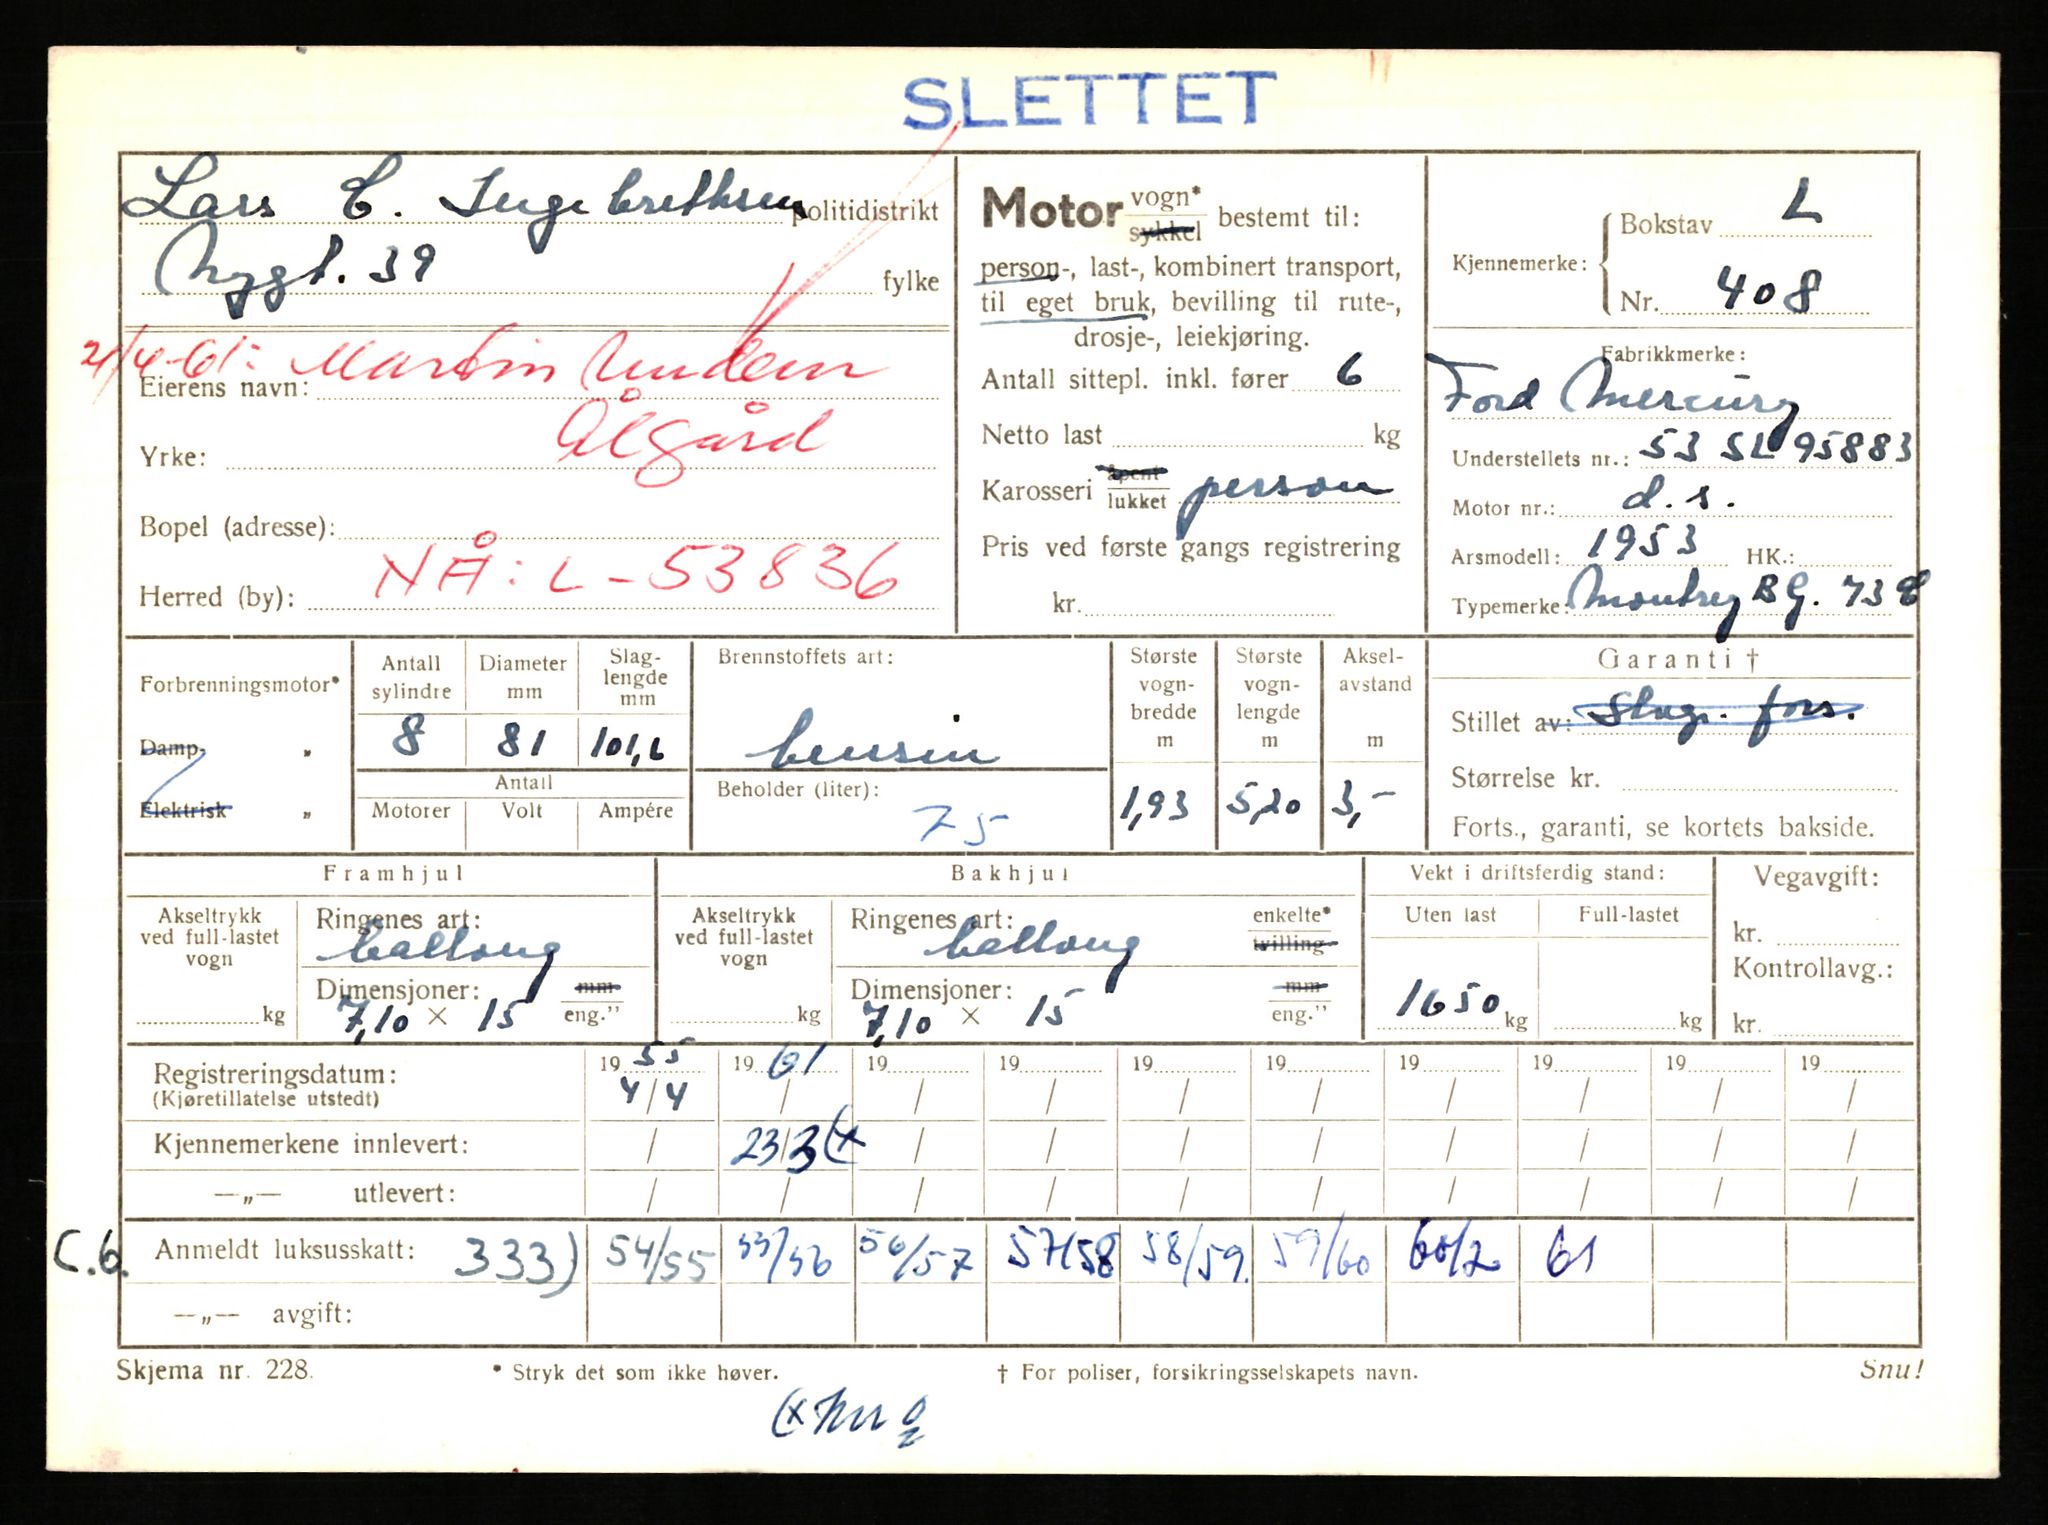 SLETTET
Lars E. Ingebrethsen politidistrikt
Nygt. 39 fylke
21/4-61: Martin Undem
Eierens navn:
Ålgård
Yrke:
Bopel (adresse):
NÅ: L - 53836
Herred (by):
Motor vogn* sykkel bestemt til:
person-, last-, kombinert transport,
til eget bruk, bevilling til rute-,
drosje-, leiekjøring.
Antall sittepl. inkl. fører 6
Netto last kg
Karosseri åpent lukket person
Pris ved første gangs registrering
kr.
Kjennemerke: Bokstav L
Nr. 408
Fabrikkmerke:
Ford Mercury
Understellets nr.: 53 SL 95883
Motor nr.: d.s.
Årsmodell: 1953 HK.:
Typemerke: Montrey BG. 738
Forbrenningsmotor*
Damp- „
Elektrisk „
Antall sylindre 8
Diameter mm 81
Slaglengde mm 101,6
Antall
Motorer Volt Ampére
Brennstoffets art:
bensin
Beholder (liter):
75
Største vognbredde m 1,93
Største vognlengde m 5,20
Akselavstand m 3,-
Garanti †
Stillet av: Stvgr. fors.
Størrelse kr.
Forts., garanti, se kortets bakside.
Framhjul
Akseltrykk ved full-lastet vogn kg
Ringenes art:
ballong
Dimensjoner: mm eng.”
7,10 × 15
Bakhjul
Akseltrykk ved full-lastet vogn kg
Ringenes art: enkelte* tvilling-
ballong
Dimensjoner: mm eng.”
7,10 × 15
Vekt i driftsferdig stand:
Uten last Full-lastet
1650 kg kg
Vegavgift:
kr.
Kontrollavg.:
kr.
Registreringsdatum: 19 55 19 61 19 19 19 19 19 19 19 19
(Kjøretillatelse utstedt) 4/4 / / / / / / / / /
Kjennemerkene innlevert: / 23/3 (x / / / / / / / /
—„— utlevert: / / / / / / / / / /
C.6. Anmeldt luksusskatt: 333) 54/55 55/56 56/57 57/58 58/59. 59/60 60/2 61
—„— avgift:
Skjema nr. 228. * Stryk det som ikke høver. † For poliser, forsikringsselskapets navn. Snu!